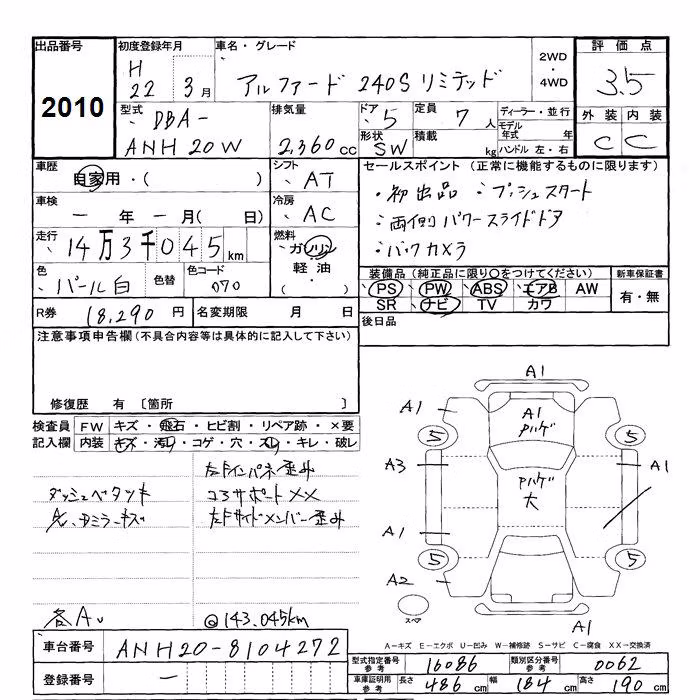 出品番号
2010
初度登録年月
H 22 3月
車名・グレード
アルファード 240S リミテッド
2WD・4WD
評価点
3.5
型式
DBA-
ANH20W
排気量
2,360cc
ドア
5
定員 7人
形状
SW
積載 kg
ディーラー・並行
モデル年式 年
ハンドル 左・右
外装 内装
C C
車歴
自家用・( )
シフト
AT
セールスポイント(正常に機能するものに限ります)
・初出品 :プッシュスタート
:両側パワースライドドア
:バックカメラ
車検
ー年ー月( 日)
冷房
AC
走行
14万3千045km
燃料
ガソリン
・軽油・
( )
色
パール白
色替
色コード
070
装備品(純正品に限り○をつけてください)
PS PW ABS エアB AW
SR ナビ TV カワ
新車保証書
有・無
R券 18,290円
名変期限 月 日
後日品
注意事項申告欄(不具合内容等は具体的に記入して下さい)
修復歴 有 〔箇所 〕
検査員記入欄
FW キズ・飛石・ヒビ割・リペア跡・×要
内装 キズ・汚れ・コゲ・穴・スレ・キレ・破レ
左Fインパネ歪み
ダッシュベタツキ
コアサポート××
左、右ミラーキズ
左Fサイドメンバー歪み
各A
@143,045km
A1
A1
A1
Pハゲ
5
5
A3
Pハゲ
大
A1
A1
5
5
A2
スペア
A1
A-キズ E-エクボ U-凹み W-補修跡 S-サビ C-腐食 XX→交換済
車台番号 ANH20-8104272
登録番号 ー
型式指定番号参考 16086
類別区分番号参考 0062
車庫証明用参考 長さ 486cm 幅 184cm 高さ 190cm